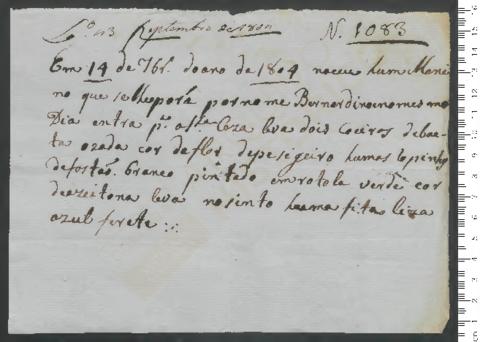 Lº 13 Septembro de 1804 N. 1083
Em 14 de 7br. do ano de 1804 naceu hum Meni
no que se lhe porá por nome Bernardino e no mesmo
Dia entra pª esta Caza leva dois Coeiros de bae
ta uzada cor de flor de pesigeiro humas lopinhas
de fostaõ branco pintado em rotola verde cor
de azeitona leva no sinto huma fita liza
azul ferete